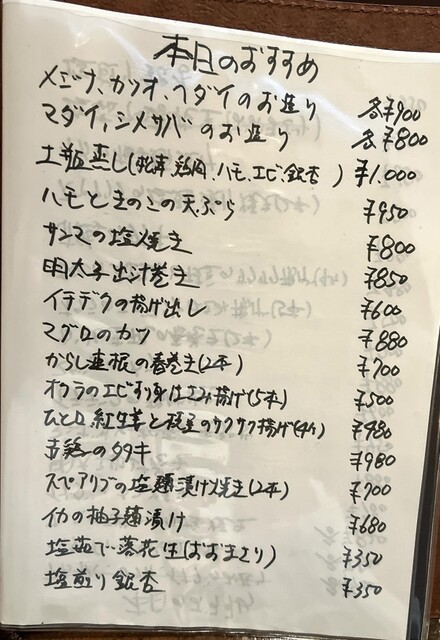 本日のおすすめ
メジナ、カツオ、ヘダイのお造り 各¥900
マダイ、シメサバのお造り 各¥800
土瓶蒸し(松茸、鶏肉、ハモ、エビ、銀杏) ¥1.000
ハモときのこの天ぷら ¥950
サンマの塩焼き ¥800
明太子出汁巻き ¥850
イチヂクの揚げ出し ¥600
マグロのカツ ¥880
からし蓮根の春巻き(2本) ¥700
オクラのエビすり身はさみ揚げ(5本) ¥500
ひと口 紅生姜と枝豆のサクサク揚げ(4ケ) ¥480
赤鶏のタタキ ¥980
スペアリブの塩麹漬け焼き(2本) ¥700
イカの柚子麹漬け ¥680
塩茹で落花生(おおまさり) ¥350
塩煎り銀杏 ¥350